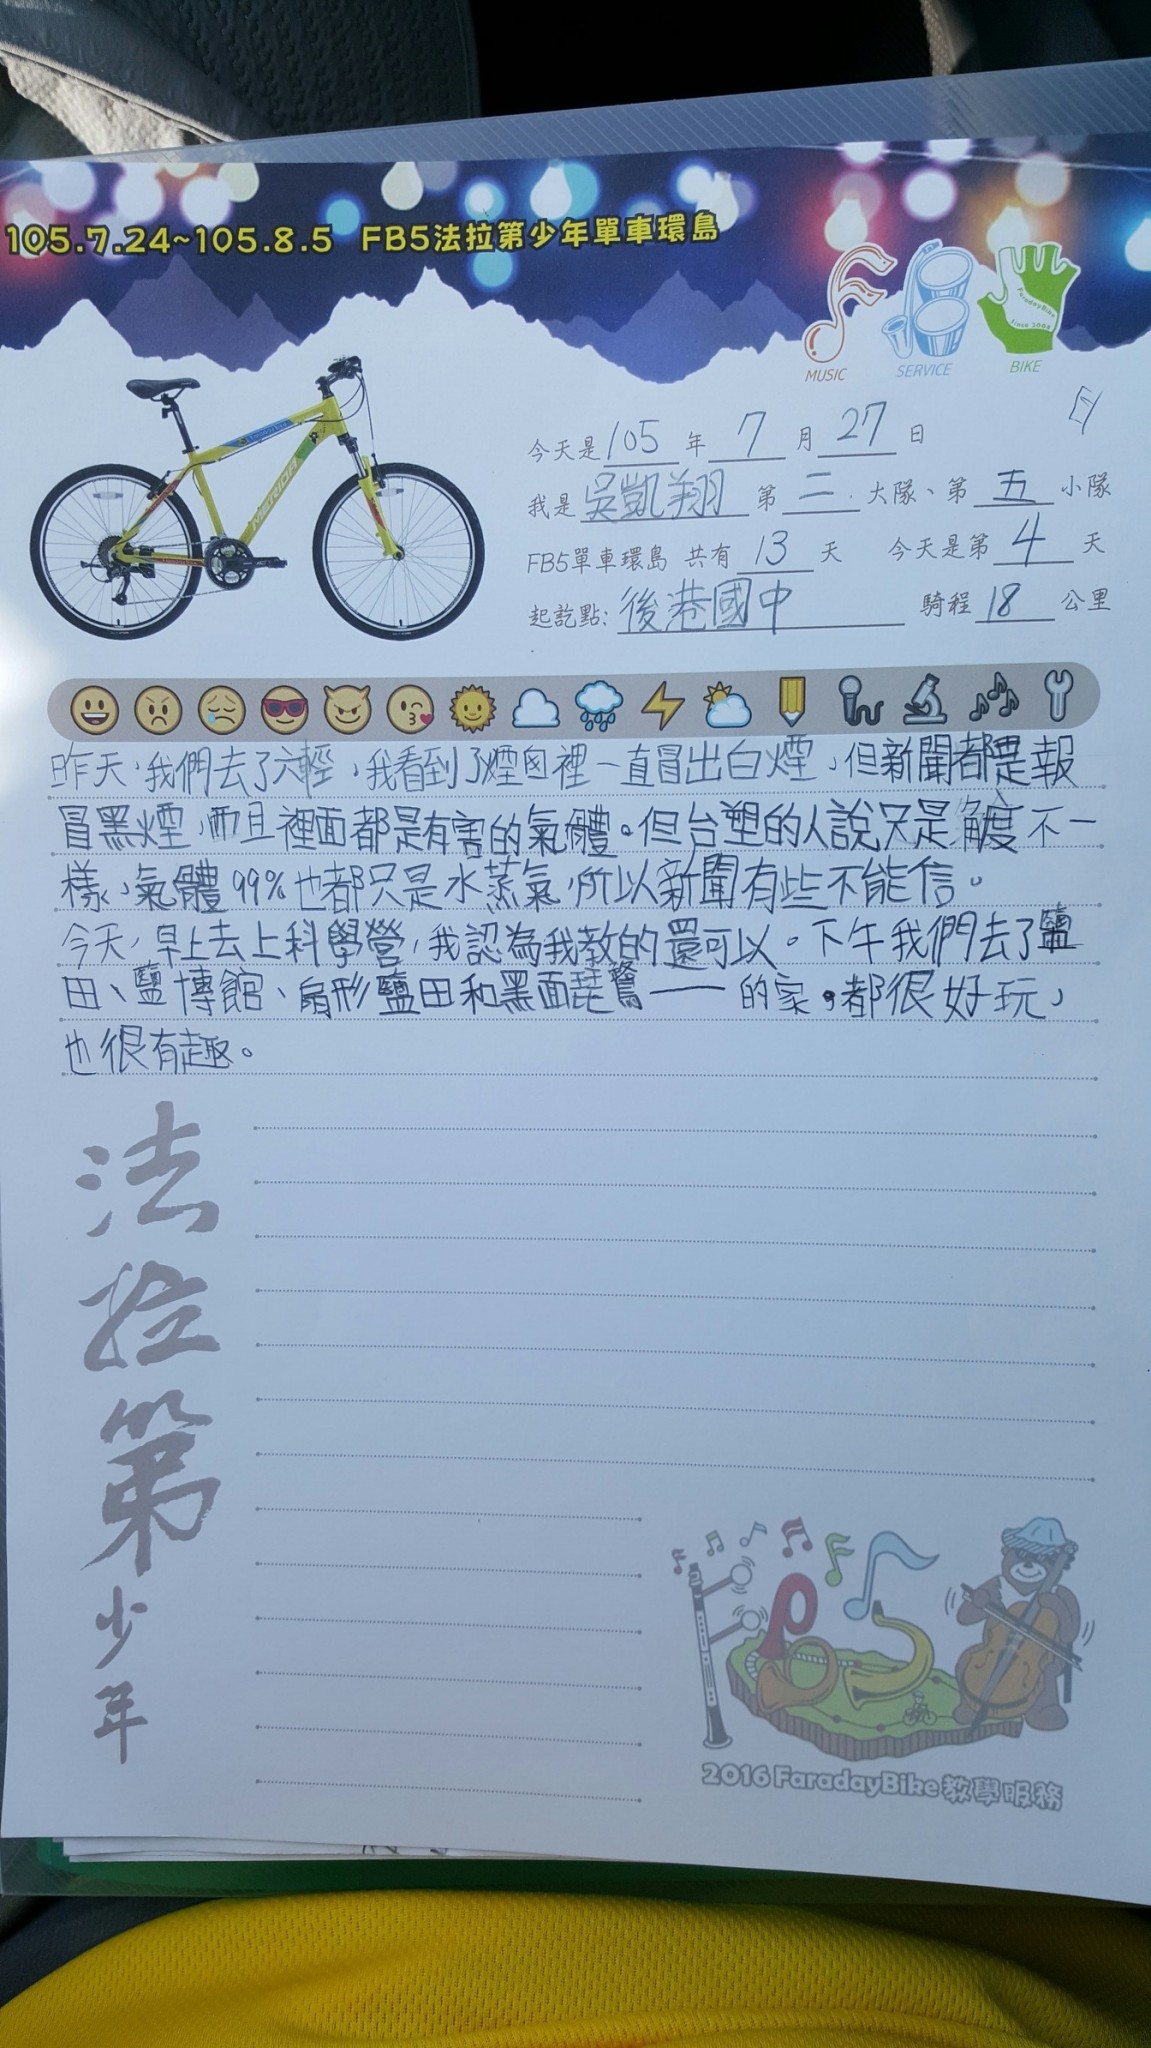 105.7.24~105.8.5 FB5法拉第少年單車環島
MUSIC
SERVICE
FaradayBike
Since 2009
BIKE
MERIDA
今天是105年7月27日
我是吳凱翔 第二大隊、第五小隊
FB5單車環島 共有13天 今天是第4天
起訖點:後港國中 騎程18公里
昨天,我們去了六輕,我看到了煙囱裡一直冒出白煙,但新聞都是報
冒黑煙,而且裡面都是有害的氣體。但台塑的人說只是角度不一
樣,氣體99%也都只是水蒸氣,所以新聞有些不能信。
今天,早上去上科學營,我認為我教的還可以。下午我們去了鹽
田、鹽博館、扇形鹽田和黑面琵鷺——的家。都很好玩,
也很有趣。
法拉第少年
2016 FaradayBike 教學服務